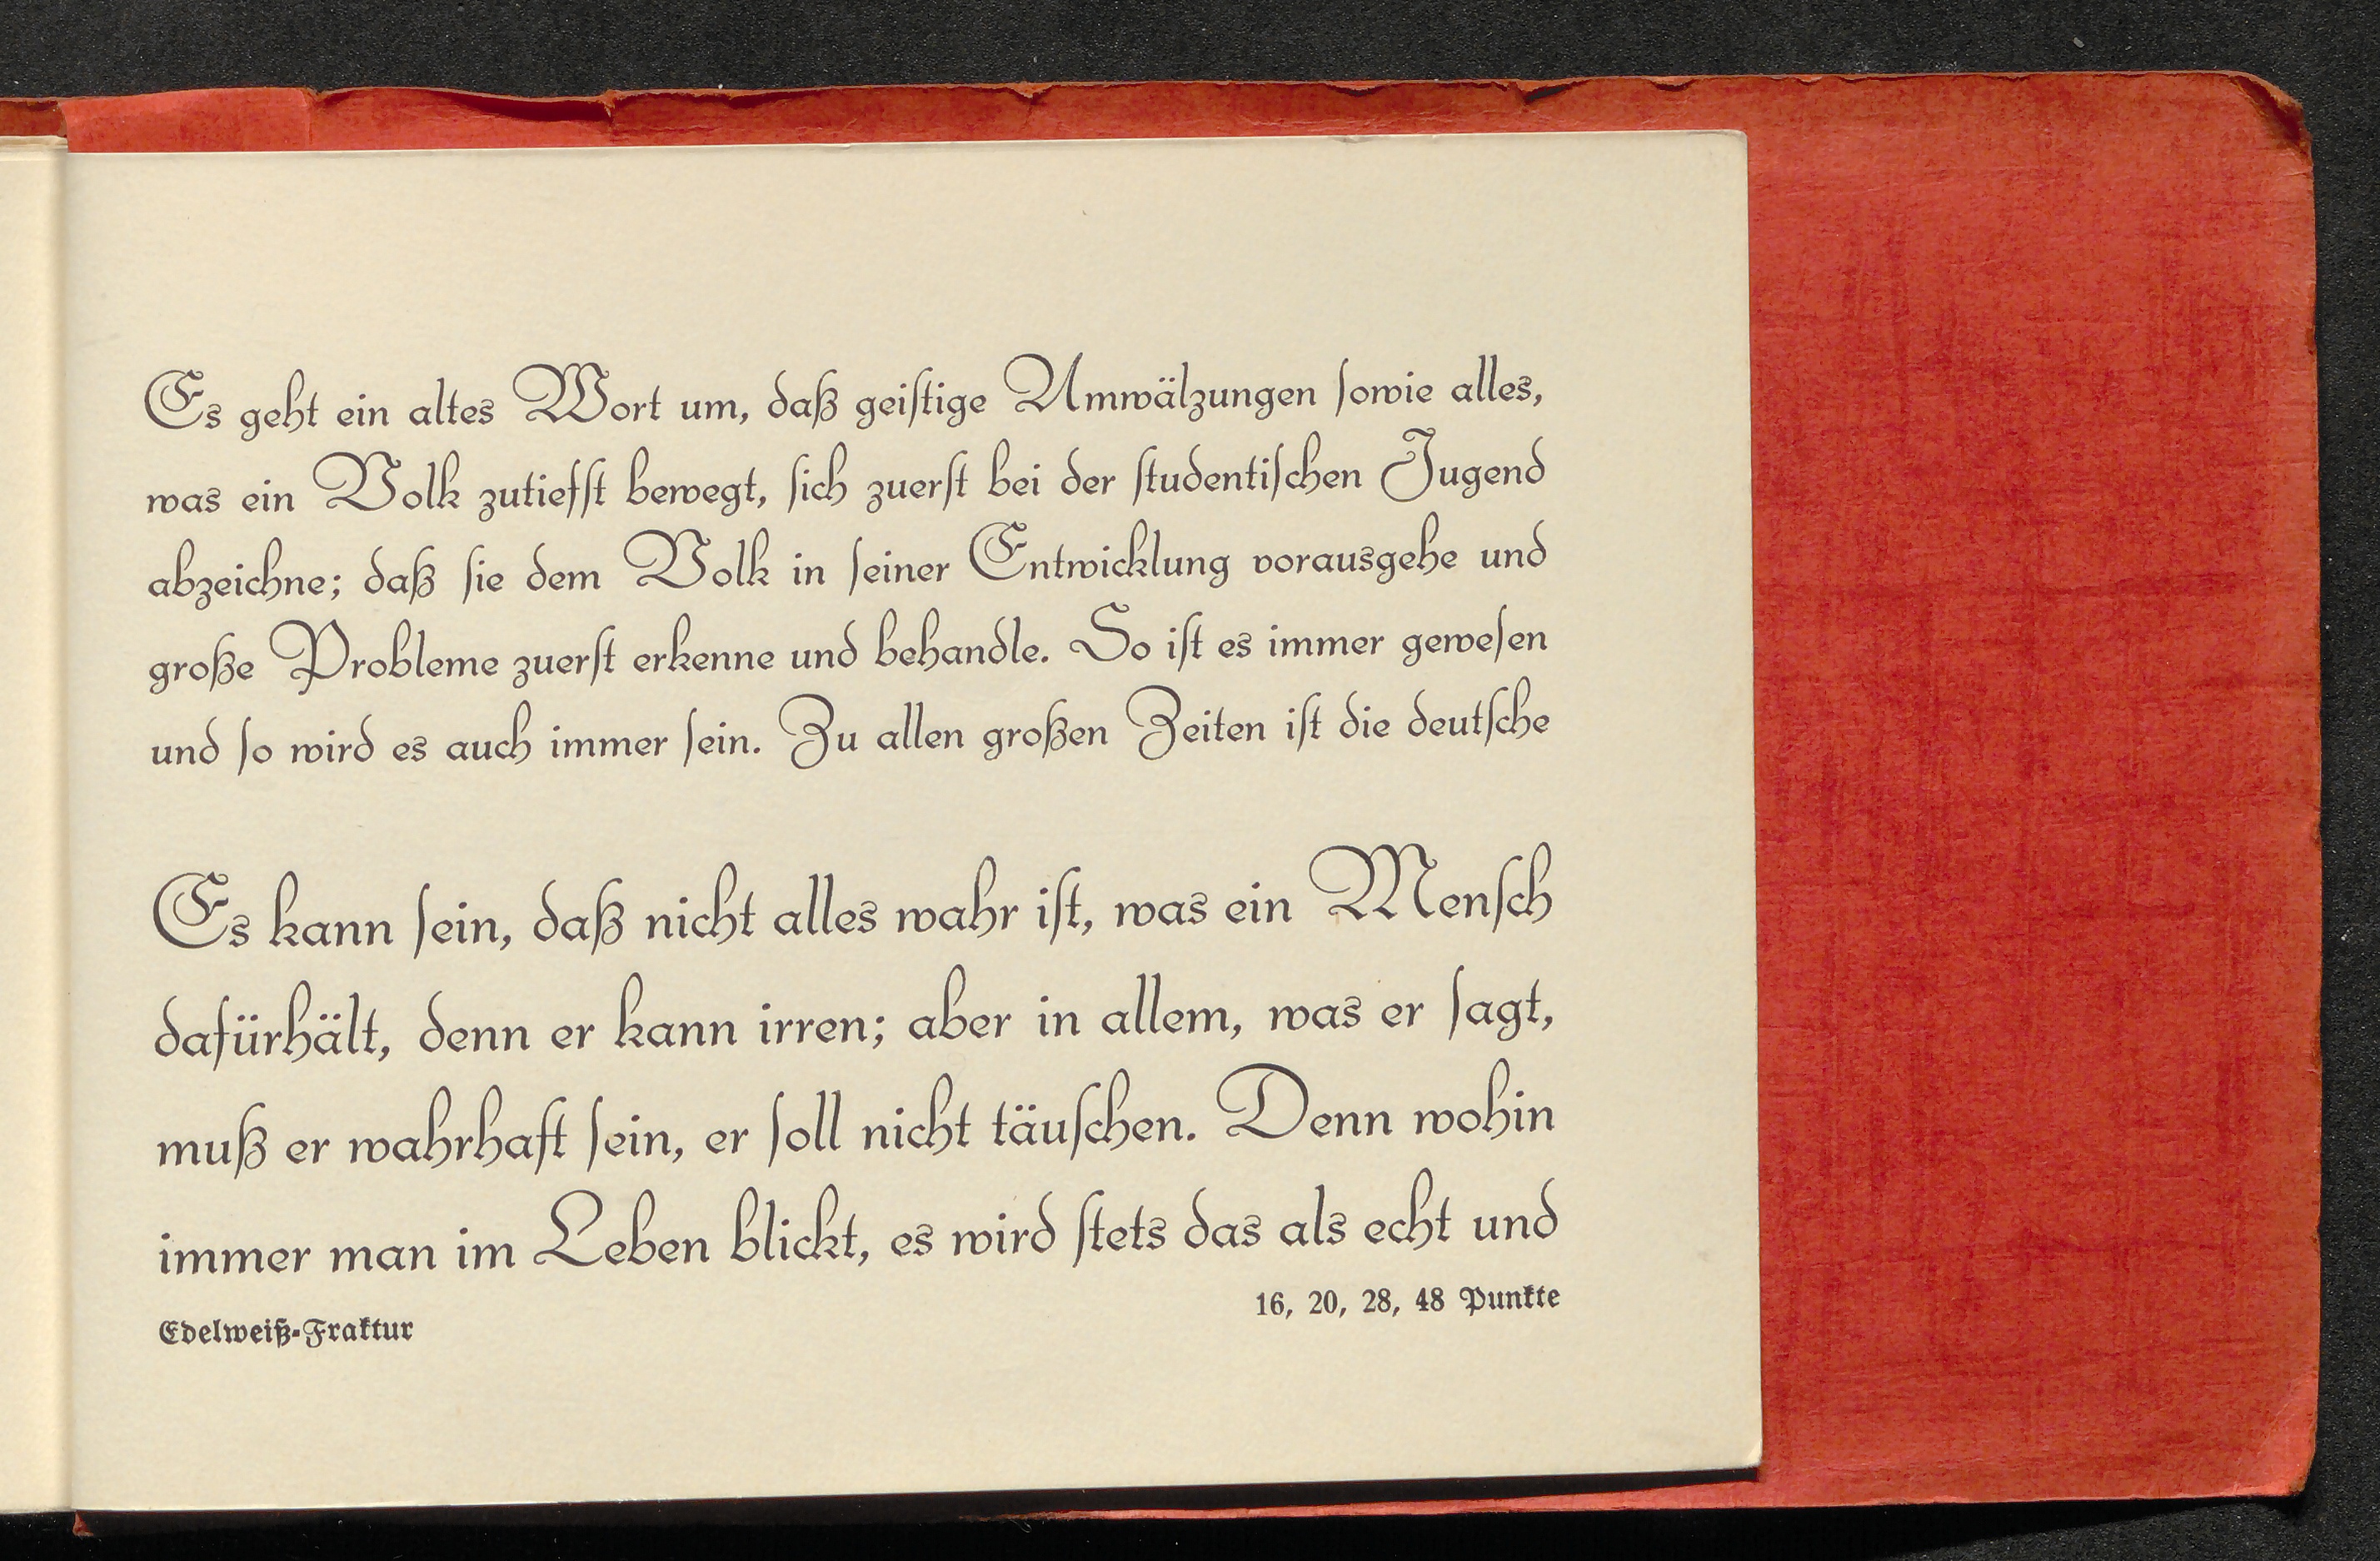 Es geht ein altes Wort um, daß geiſtige Umwälzungen ſowie alles,
was ein Volk zutiefſt bewegt, ſich zuerſt bei der ſtudentiſchen Jugend
abzeichne; daß ſie dem Volk in ſeiner Entwicklung vorausgehe und
große Probleme zuerſt erkenne und behandle. So iſt es immer geweſen
und ſo wird es auch immer ſein. Zu allen großen Zeiten iſt die deutſche
Es kann ſein, daß nicht alles wahr iſt, was ein Menſch
dafürhält, denn er kann irren; aber in allem, was er ſagt,
muß er wahrhaft ſein, er ſoll nicht täuſchen. Denn wohin
immer man im Leben blickt, es wird ſtets das als echt und
16, 20, 28, 48 Punkte
Edelweiß-Fraktur